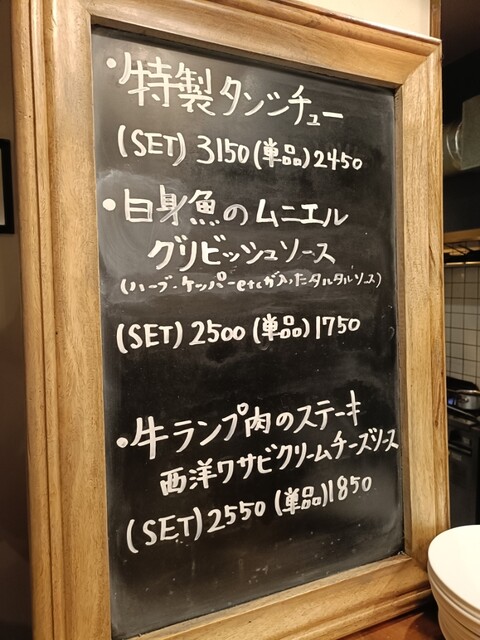 ・特製タンシチュー
(SET) 3150 (単品) 2450
・白身魚のムニエル
グリビッシュソース
(ハーブ・ケッパーetcが入ったタルタルソース)
(SET) 2500 (単品) 1750
・牛ランプ肉のステーキ
西洋ワサビクリームチーズソース
(SET) 2550 (単品) 1850